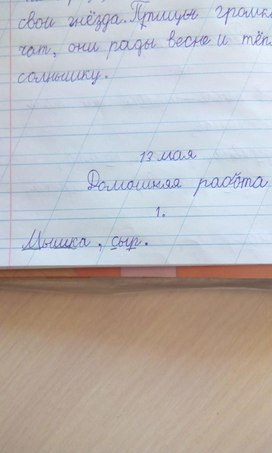 свои гнёзда. Птицы громко
чат, они рады весне и тёпл
солнышку.
13 мая
Домашняя работа
1.
Мышка, сыр.